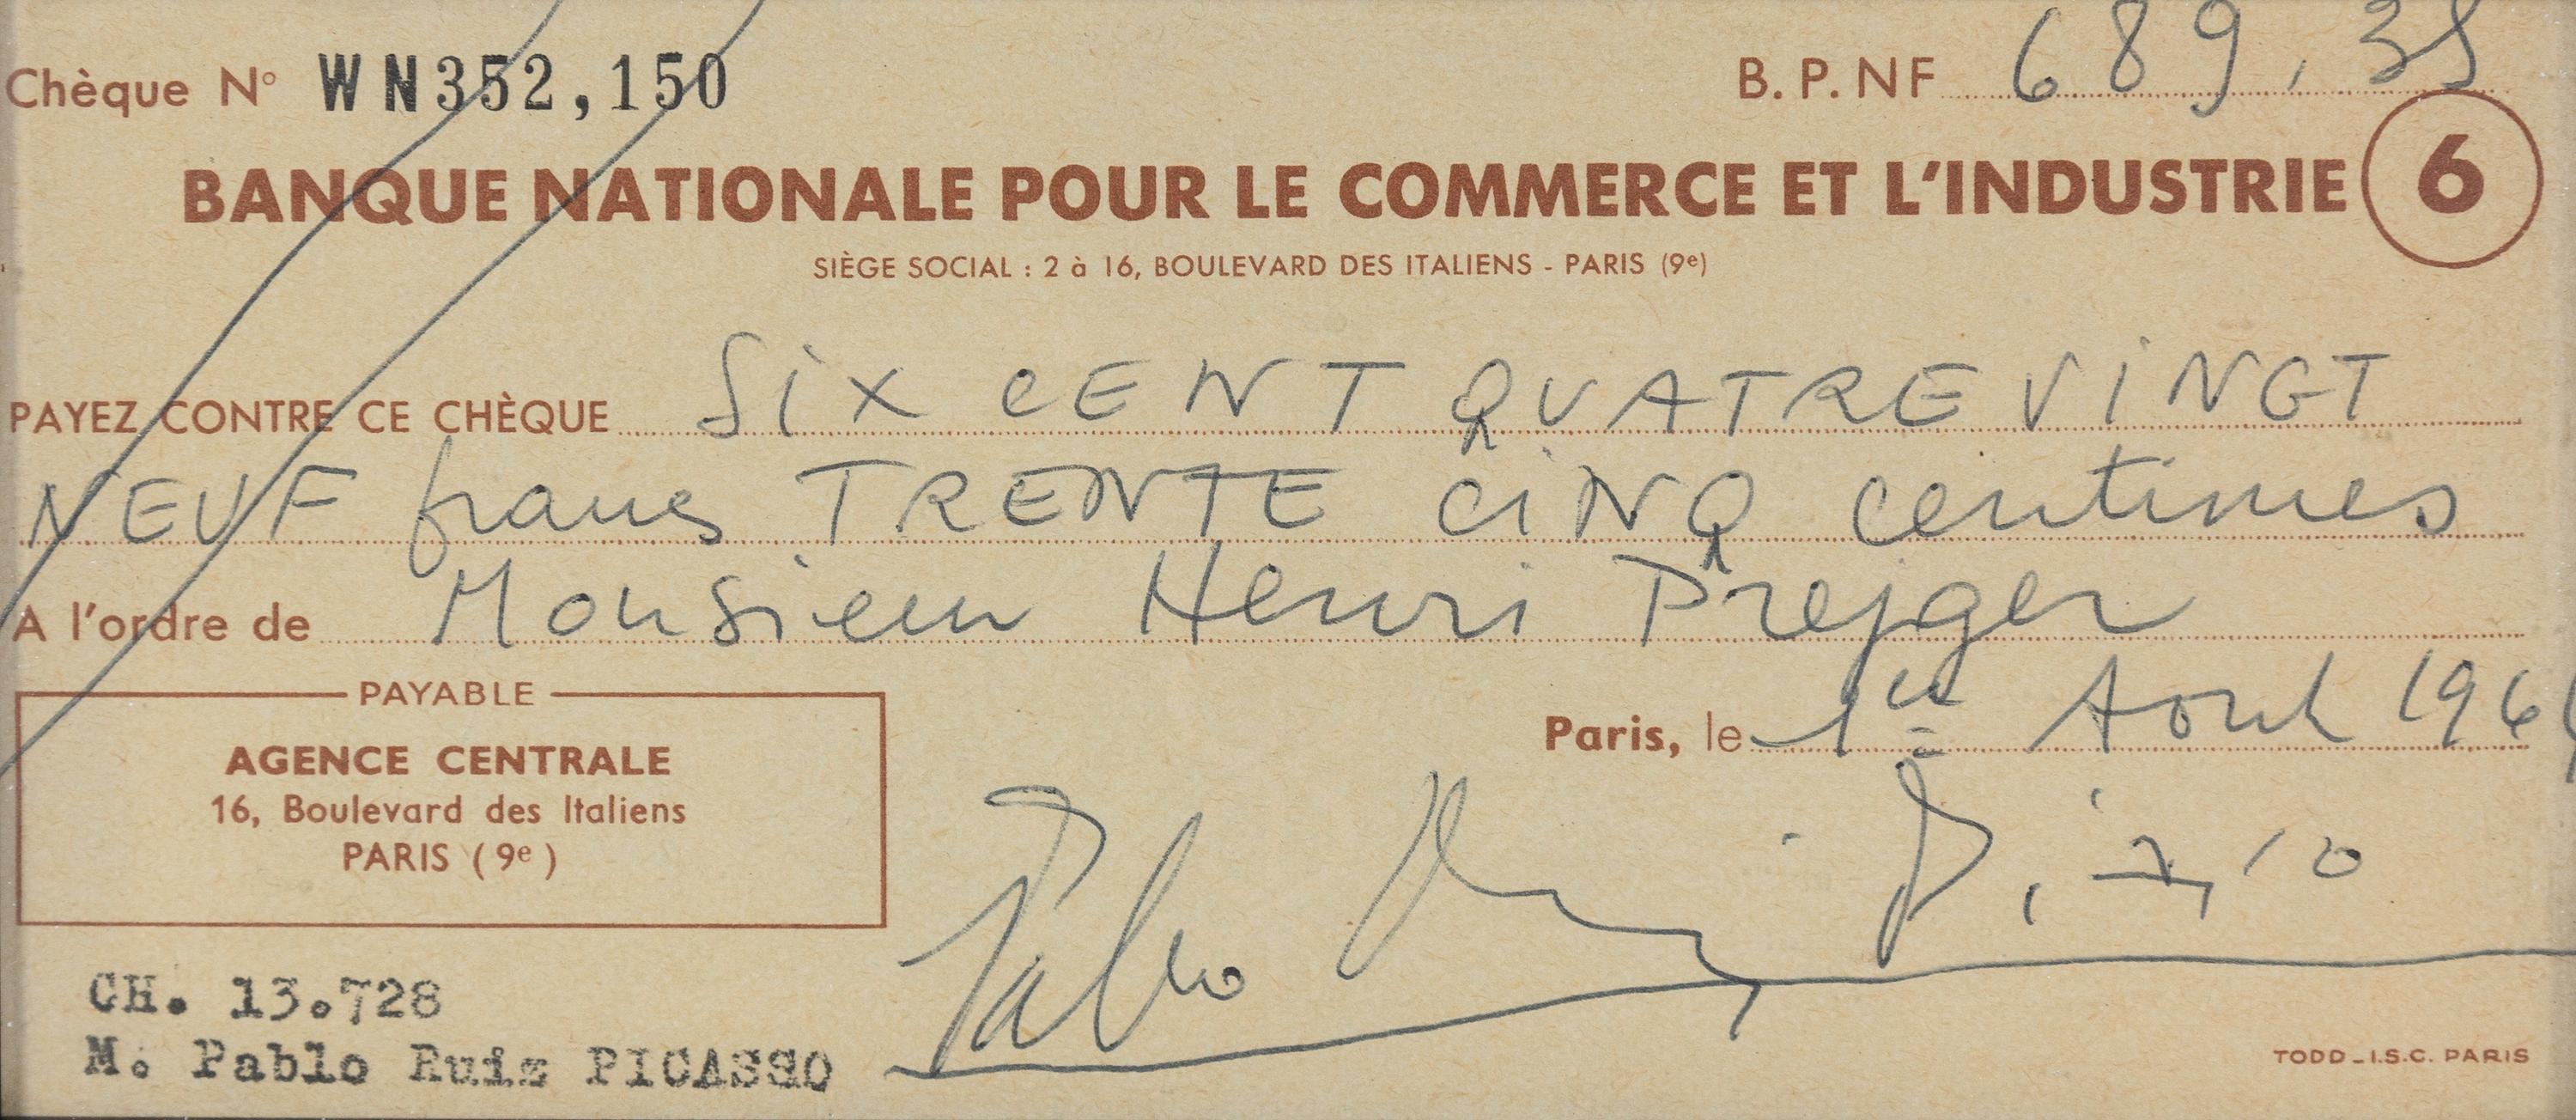 Chèque N° WN352,150 B.P.NF 689,35
BANQUE NATIONALE POUR LE COMMERCE ET L'INDUSTRIE 6
SIÈGE SOCIAL : 2 à 16, BOULEVARD DES ITALIENS - PARIS (9e)
PAYEZ CONTRE CE CHÈQUE SiX CENT QUATRE ViNGT
NEUF francs TRENTE CiNQ centimes
A l'ordre de Monsieur Henri Prejger
PAYABLE
AGENCE CENTRALE
16, Boulevard des Italiens
PARIS (9e)
Paris, le 1er Aout
Pablo Ruiz Picasso
CH. 13.728
M. Pablo Ruiz PICASSO
TODD_I.S.C. PARIS